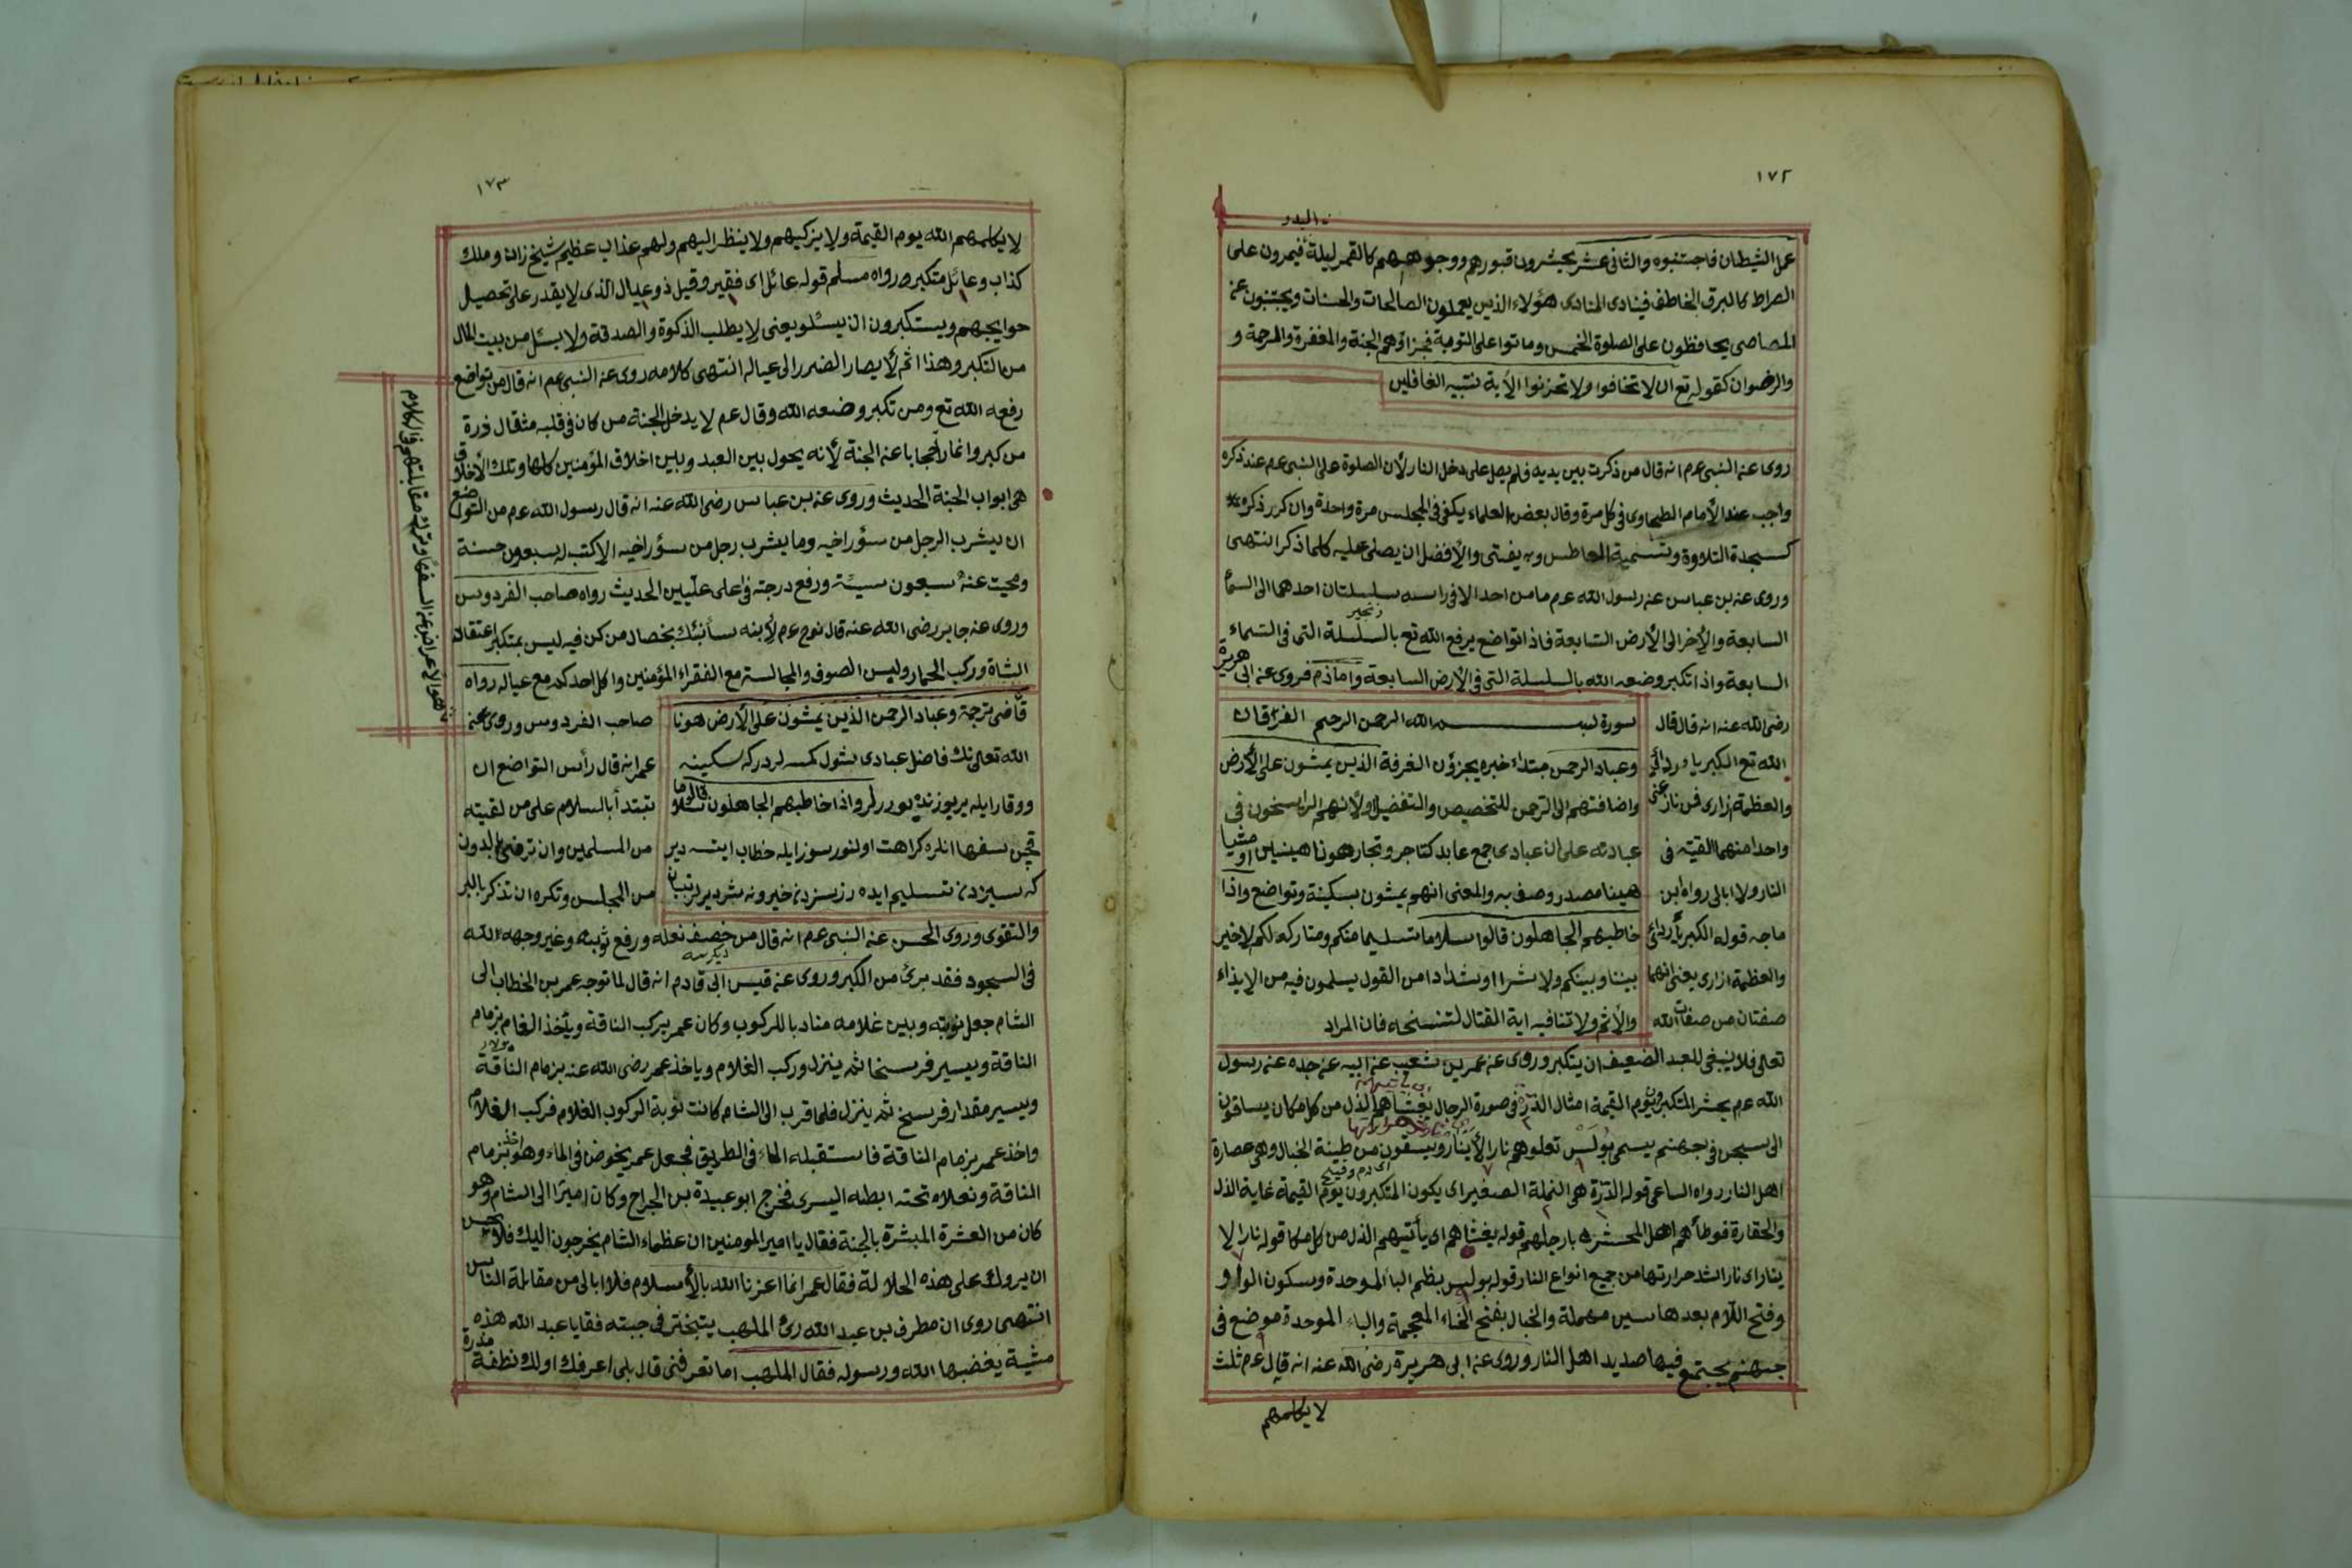 ١٧٢
البدر
عمل الشيطان فاجتنبوه والثانى عشر يحشرون قبورهم ووجوههم كالقمر ليلة فيمرون على
الصراط كالبرق الخاطف فينادى المنادى هؤلاء الذين يعملون الصالحات والحسنات ويجتنبون عن
المعاصى يحافظون على الصلوة الخمس وماتوا على التوبة فجزاؤهم الجنة والمغفرة والرحمة و
والرضوان كقوله تع ان لا تخافوا ولا تحزنوا الأية تنبيه الغافلين
روى عن النبى عم انه قال من ذكرت بين يديه فلم يصل على دخل النار لأن الصلوة على النبى عم عند ذكره
واجب عند الأمام الطحاوى فى كل مرة وقال بعض العلماء يكفى فى المجلس مرة واحدة وان كرر ذكره
كسجدة التلاوة وتسمية العاطس وبه يفتى والأفضل ان يصلى عليه كلما ذكر انتهى
وروى عن بن عباس عن رسول الله عم ما من احد الا فى راسه سلسلتان احدهما الى السمأ
زنجير
السابعة والأخر الى الأرض السابعة فاذا تواضع يرفع الله تع بالسلسلة التى فى السماء
السابعة واذا تكبر وضعه الله بالسلسلة التى فى الأرض السابعة واما ذم فروى عن ابى هريرة
رضى الله عنه انه قال قال
الله تع الكبرياء ردائى
والعظمة ازارى فمن نازعنى
واحدا منهما القيته فى
النار ولا ابالى رواه ابن
ماجه قوله الكبريأ ردائى
والعظمة ازارى يعنى انهما
صفتان من صفات الله
سورة بسم الله الرحمن الرحيم الفرقان
وعباد الرحمن مبتداء خبره يجزؤن الغرفة الذين يمشون على الأرض
واضافتهم الى الرحمن للتخصيص والتفضيل او لأنهم الراسخون فى
عبادته على ان عبادى جمع عابد كتاجر وتجار هونا هينين او مشيا
هينا مصدر وصف به والمعنى انهم يمشون بسكينة وتواضع واذا
خاطبهم الجاهلون قالوا سلاما تسليما منكم ومتاركه لكم لا خير
بيننا وبينكم ولا شرا او شدادا من القول يسلمون فيه من الايذاء
والأثم ولا تنافيه اية القتال لتنسخه فان المراد
تعالى فلا ينبغى للعبد الضعيف ان يتكبر وروى عن عمر بن شعيب عن ابيه عن جده عن رسول
الله عم يحشر المتكبرون يوم القيمة امثال الذرة فى صورة الرجال يغشاهم الذل من كل مكان يساقون
الى سجن فى جهنم يسمى بولس تعلوهم نار الأنيار ويسقون من طينة الخبال وهى عصارة
اى دم وقيح
اهل النار رواه الساعى قوله الذرة هى النملة الصغير اى يكون المتكبرون يوم القيمة غاية الذل
والحقارة فوطأهم اهل المحشر بارجلهم قوله يغشاهم اى يأتيهم الذل من كل مكا قوله نار الا
ينار اى نار اشد حرارتها من جميع انواع النار قوله بولس بظم البا الموحدة وسكون الواو و
وفتح اللام بعدها سين مهملة والخبال بفتح الخاء المعجمة والباء الموحدة موضع فى
جهنم يجتمع فيها صديد اهل النار وروى عن ابى هريرة رضى الله عنه انه قال عم ثلث
لا يكلمهم
١٧٣
لا يكلمهم الله يوم القيمة ولا يزكيهم ولا ينظر اليهم ولهم عذاب عظيم شيخ زان وملك
كذاب وعائل متكبر رواه مسلم قوله عائل اى فقير وقيل ذو عيال الذى لا يقدر على تحصيل
حوايجهم ويستكبرون ان يسئلو يعنى لا يطلب الذكوة والصدقة ولا يسئل من بيت المال
من التكبر وهذا اثم لأيصار الضرر الى عياله انتهى كلامه روى عن النبى عم انه قال من تواضع
رفعه الله تع ومن تكبر وضعه الله وقال عم لا يدخل الجنة من كان فى قلبه مثقال ذرة
من كبر وانما راحجابا عن الجنة لأنه يحول بين العبد وبين اخلاق المؤمنين كلها وتلك الأخلاق
هى ابواب الجنة الحديث وروى عن بن عباس رضى الله عنه انه قال رسول الله عم من التواضع
ان يشرب الرجل من سؤر اخيه وما يشرب رجل من سؤر اخيه الا كتب له سبعون حسنة
ومحيت عنه سبعون سيئة ورفع درجته فى اعلى عليين الحديث رواه صاحب الفردوس
وروى عن جابر رضى الله عنه قال نوح عم لأبنه سأنبئك بخصال من كن فيه ليس بمتكبر اعتقال
الشاة وركب الحمار ولبس الصوف والمجالسته مع الفقراء المؤمنين واكل احدكم مع عياله رواه
قاضى ترجمة وعباد الرحمن الذين يمشون على الأرض هونا
الله تعالى نك فاضل عبادى شول كمسه لردركه سكينه
ووقار ايله ير يوزنده يوررلر واذا خاطبهم الجاهلون قالوا سلاما
قچن سفها انلره كراهت اولنور سوز ايله خطاب ايتسه دير
كه سيزدن تسليم ايده رز سزدن خير ونه شر ديرلر تبيان
صاحب الفردوس وروى عن
عمر انه قال رأس التواضع ان
تبتدأ بالسلام على من لقيته
من المسلمين وان ترضى بالدون
من المجلس وتكره ان تذكر بالبر
والتقوى وروى الحسن عن النبى عم انه قال من خصف نعله ورفع ثوبه وغير وجهه لله
فى السجود فقد برئ من الكبر وروى عن قيس ابى قادم انه قال لما توجه عمر بن الخطاب الى
الشام جعل نوبته وبين غلامه مناد با للركوب وكان عمر يركب الناقة ويأخذ الغلام بزمام
الناقة ويسير فرسخا ثم ينزل وركب الغلام وياخذ عمر رضى الله عنه بزمام الناقة
ويسير مقدار فرسخ ثم ينزل فلما قرب الى الشام كانت نوبة الركوب الغلام فركب الغلام
واخذ عمر بزمام الناقة فاستقبله الماء فى الطريق فجعل عمر يخوض فى الماء وهو اخذ بزمام
الناقة ونعلاه تحت ابطه اليسرى فخرج ابو عبيدة بن الجراح وكان اميرا الى الشام وهو
كان من العشرة المبشرة بالجنة فقال يا امير المومنين ان عظماء الشام يخرجون اليك فلا يحسن
ان يروك على هذه الحلالة فقال عمر انما اعزنا الله بالأسلام فلا ابالى من مقابلة الناس
انتهى روى ان مطرف بن عبد الله رئ الملهب يتبختر فى جبته فقا يا عبد الله هذه
مشية يغضبها الله ورسوله فقال الملهب اما تعرفنى قال بلى اعرفك اولك نطفة مذرة
هو الاعراض عن السفها وترك مقابلتهم فى الكلام